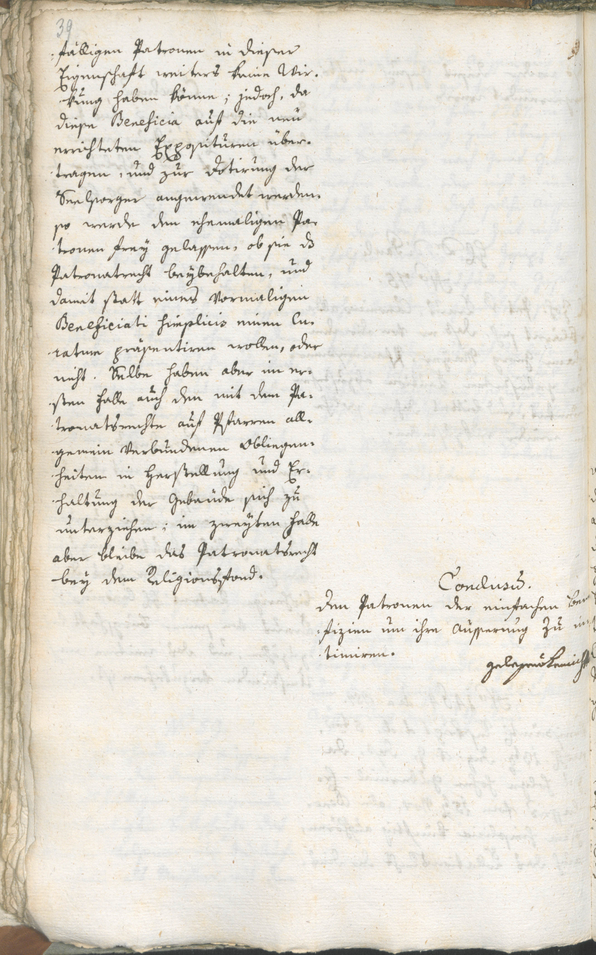 39
fälligen Patronen in dieser
Eigenschaft weiters keine Wir-
kung haben könne; jedoch, da
diese Beneficia auf die neu
errichteten Exposituren über-
tragen, und zur Dotirung der
Seelsorger angewendet werden
so werde den ehemaligen Pa-
tronen frey gelassen, ob sie das
Patronatrecht beybehalten, und
damit statt eines vormaligen
Beneficiati simplicis einen Cu-
raten präsentiren wollen, oder
nicht. Selbe haben aber im er-
sten Falle auch den mit dem Pa-
tronatsrechte auf Pfarren all-
gemein verbundenen Obliegen-
heiten in Herstellung und Er-
haltung der Gebäude sich zu
unterziehen: im zweyten Falle
aber bleibe das Patronatsrecht
bey dem Religionsfond.
Conclusum.
Den Patronen der einfachen Bene
fizien um ihre Äusserung zu in
timiren.